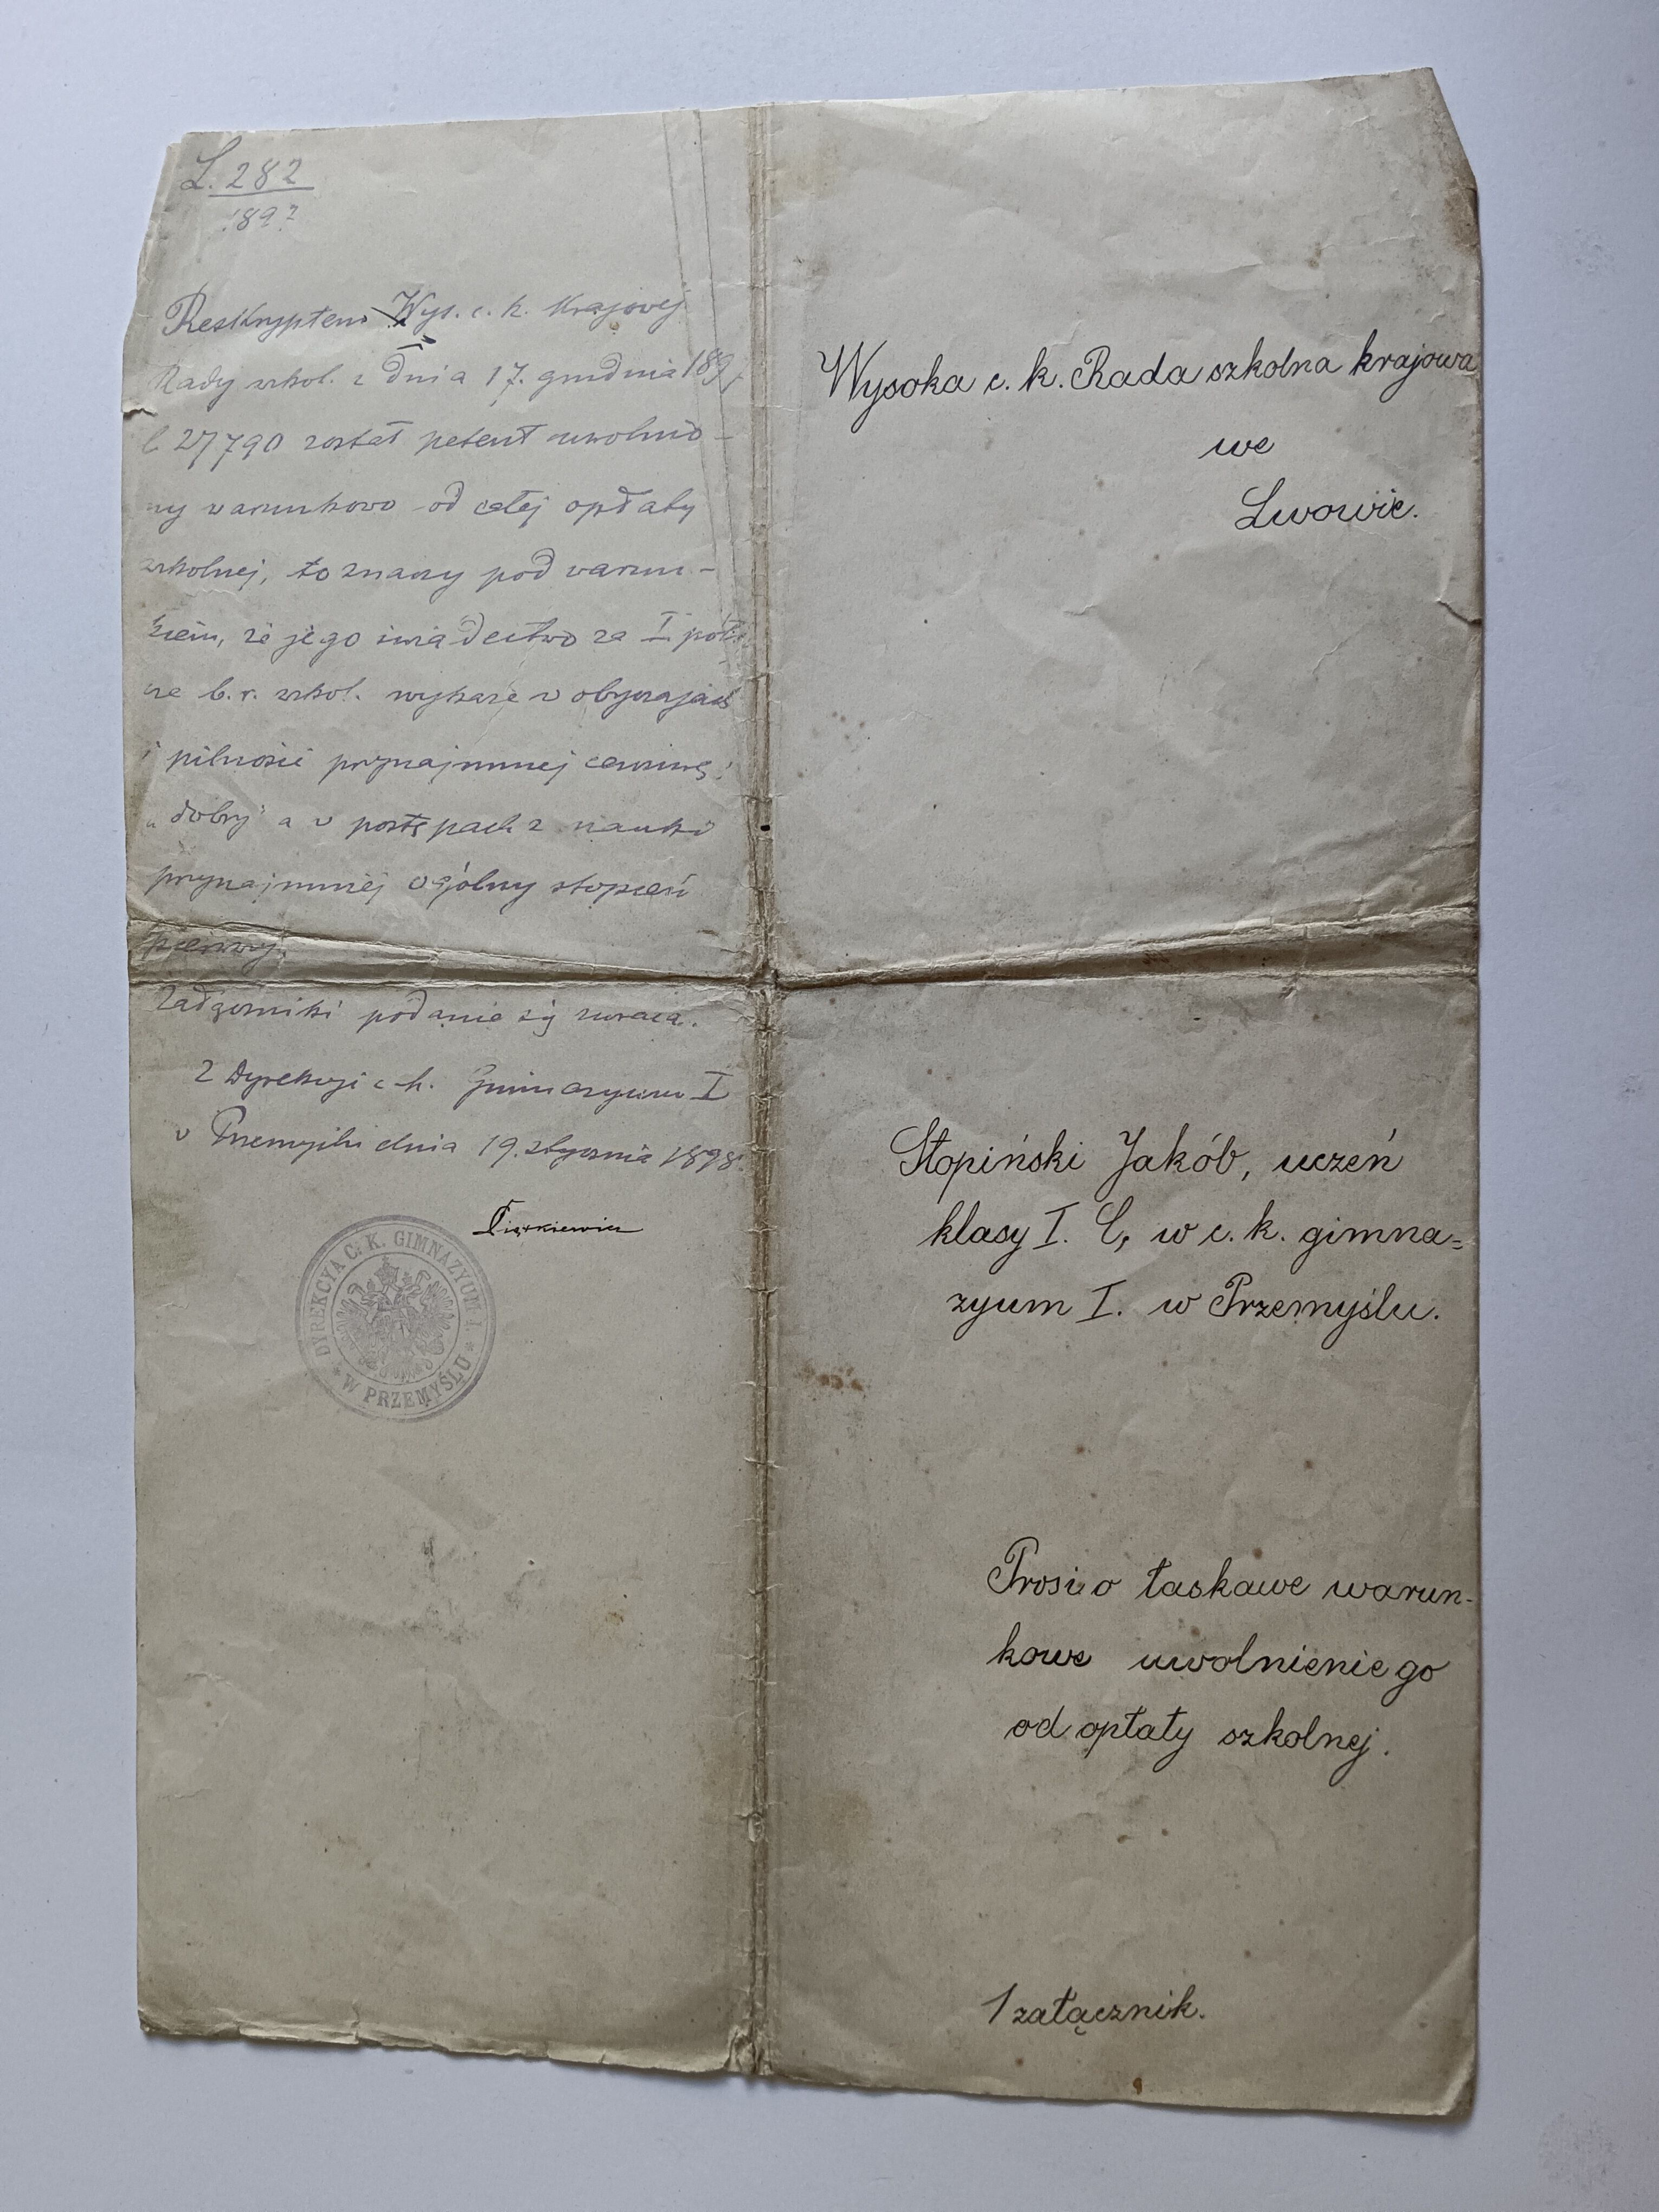 L. 282
189?
Reskryptem Wys. c. k. Krajowej
Rady szkol. z dnia 17. grudnia 189
l 27790 został petent uwolnio-
ny warunkowo od całej opłaty
szkolnej, to znaczy pod warun-
kiem, że jego świadectwo za I. pół
cze b. r. szkol. wykaże w obyczajach
i pilności przynajmniej cenzurę
„dobry" a w postępach z nauki
przynajmniej ogólny stopień
pierwszy.
Załączniki podanie się zwraca.
Z Dyrekcyi c. k. Gimnazyum I
w Przemyślu dnia 19. stycznia 1898.
Piątkiewicz
DYREKCYA C. K. GIMNAZYUM I.
* W PRZEMYŚLU *
Wysoka c. k. Rada szkolna krajowa
we
Lwowie.
Słopiński Jakób, uczeń
klasy I. C, w c. k. gimna=
zyum I. w Przemyślu.
Prosi o łaskawe warun-
kowe uwolnienie go
od opłaty szkolnej.
1 załącznik.